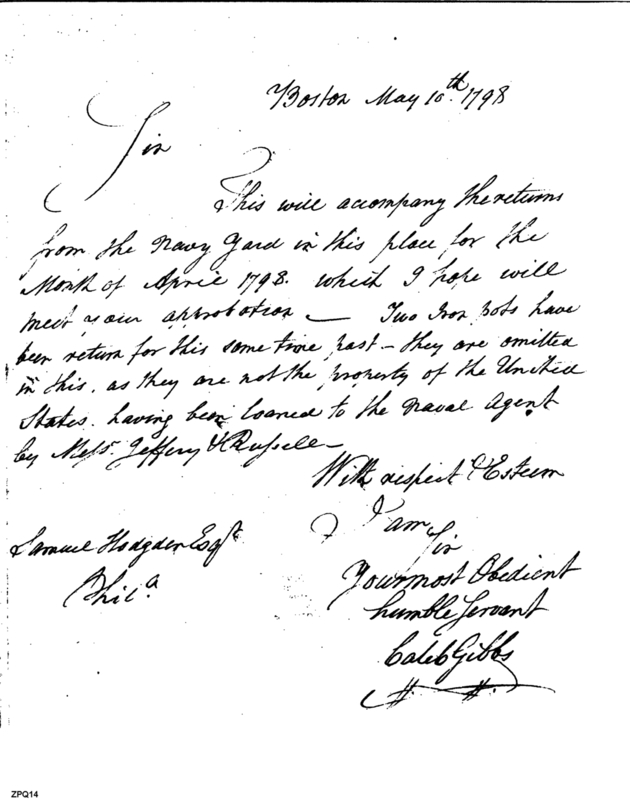 Boston May 10th 1798
Sir
This will accompany the returns
from the Navy Yard in this place for the
Month of April 1798. which I hope will
meet your approbation — Two Iron pots have
been return for this some time past – they are omitted
in this, as they are not the property of the United
States. having been loaned to the Naval Agent
by Messrs. Jeffery & Russell –
With respect & Esteem
I am
Sir
Samuel Hodgden Esqr
Phila
Your most Obedient
humble Servant
Caleb Gibbs
ZPQ14